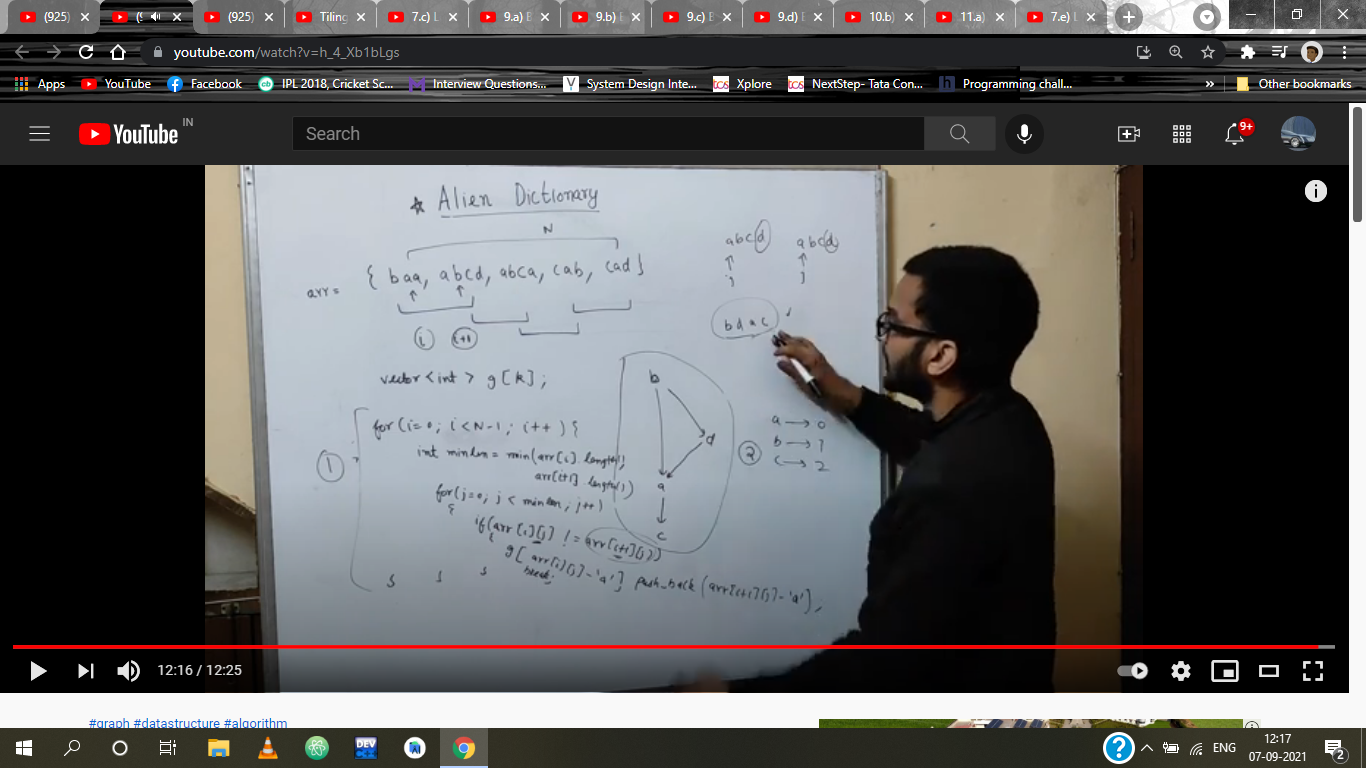 (925)
(
(925)
Tiling
7.c) L
9.a) E
9.b) E
9.c) E
9.d) E
10.b)
11.a)
7.e) L
youtube.com/watch?v=h_4_Xb1bLgs
Apps YouTube Facebook IPL 2018, Cricket Sc... Interview Questions... System Design Inte... Xplore NextStep- Tata Con... Programming chall... » Other bookmarks
YouTube IN
Search
9+
☆ Alien Dictionary
N
arr = { baa, abcd, abca, cab, cad }
i i+1
abcd abcd
j j
bdac
vector<int> g[k];
b
d
a
c
1
for(i=0; i<N-1; i++){
int minlen = min(arr[i].length(),
arr[i+1].length())
for(j=0; j<minlen; j++)
{
if(arr[i][j] != arr[i+1][j])
{
g[arr[i][j]-'a'].push_back(arr[i+1][j]-'a');
break;
2
a → 0
b → 1
c → 2
12:16 / 12:25
#graph #datastructure #algorithm
DEV C++
ENG
12:17
07-09-2021
2